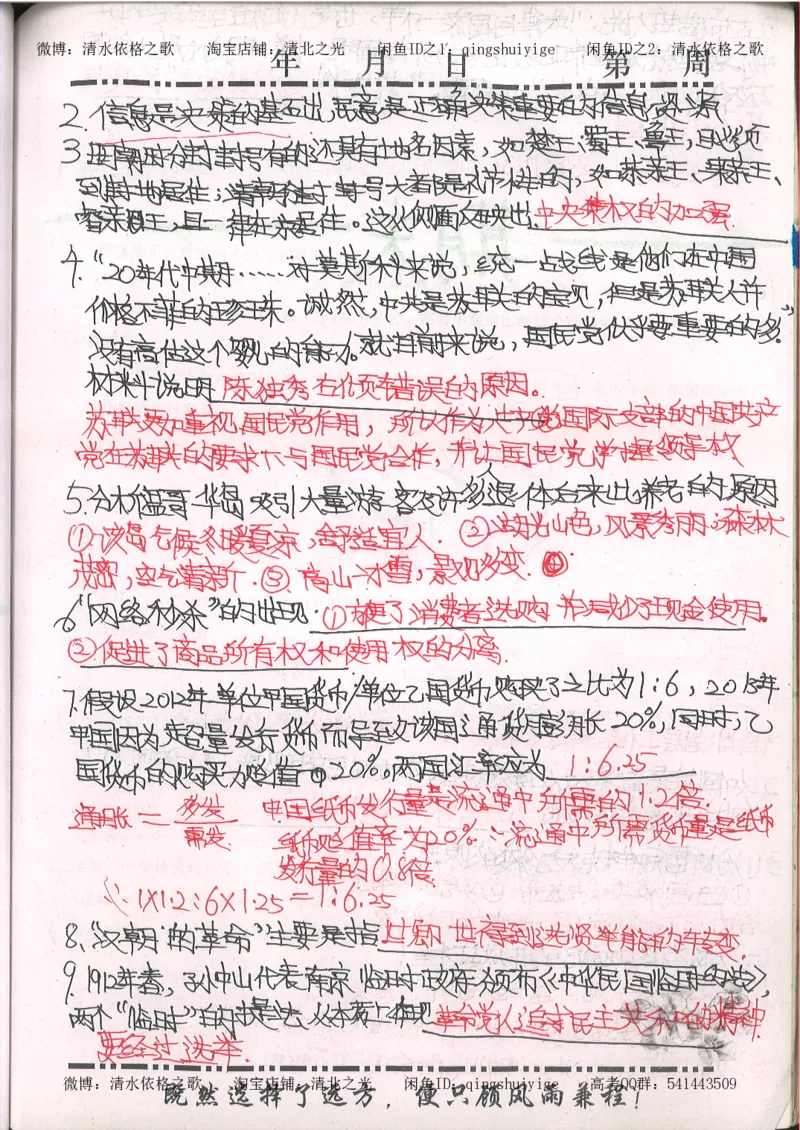 微博：清水依格之歌 淘宝店铺：清北之光 闲鱼ID之1：qingshuiyige 闲鱼ID之2：清水依格之歌
年 月 日 第 周
2. 信息是决策的基石出，民意是正确决策重要的信息资源
3. 明朝时分封封号有的还具有地名因素，如楚王、蜀王、鲁王，且必须
到封地居住；清朝诸王封号大都是礼仪性的，如恭亲王、果亲王、
睿亲王，且一律在京居住。这从侧面反映出 中央集权的加强.
4. “20年代中期……对莫斯科来说，统一战线是他们在中国
价格不菲的珍珠。诚然，中共是苏联的宝贝，但是苏联人并
没有高估这个婴儿的能力。就目前来说，国民党似乎要重要的多”
材料说明 陈独秀右倾错误的原因.
苏联更加重视国民党作用，所以作为共产党国际支部的中国共产
党在苏联的要求下与国民党合作，并让国民党掌握领导权
5. 分析温哥华岛吸引大量游客及许多退休人后来此养老的原因
①该岛气候冬暖夏凉，舒适宜人. ②湖光山色，风景秀丽；森林
茂密，空气清新. ③高山冰雪，景观多变.
6 “网络秒杀”的出现. ①方便了消费者选购 并减少了现金使用.
②促进了商品所有权和使用权的分离.
7. 假设2012年单位甲国货币/单位乙国货币购买力之比为1:6，2013年
甲国因为超量发行货币而导致该国通货膨胀20%，同时，乙
国货币的购买力贬值 20%，两国汇率应为 1:6.25
通胀 = 多发/需发 甲国纸币发行量是流通中所需的1.2倍.
纸币贬值率为20% ∴流通中所需货币量是纸币
发行量的0.8倍
∴1×1.2:6×1.25=1:6.25
8. “汉朝的革命”主要是指 世卿世禄到选贤举能的转变.
9. 1912年春，孙中山代表南京临时政府颁布《中华民国临时约法》，
两个“临时”的提法，从本质上体现 革命党人追求民主共和的精神.
要经过选举.
微博：清水依格之歌 淘宝店铺：清北之光 闲鱼ID：qingshuiyige 高考QQ群：541443509
既然选择了远方，便只顾风雨兼程！